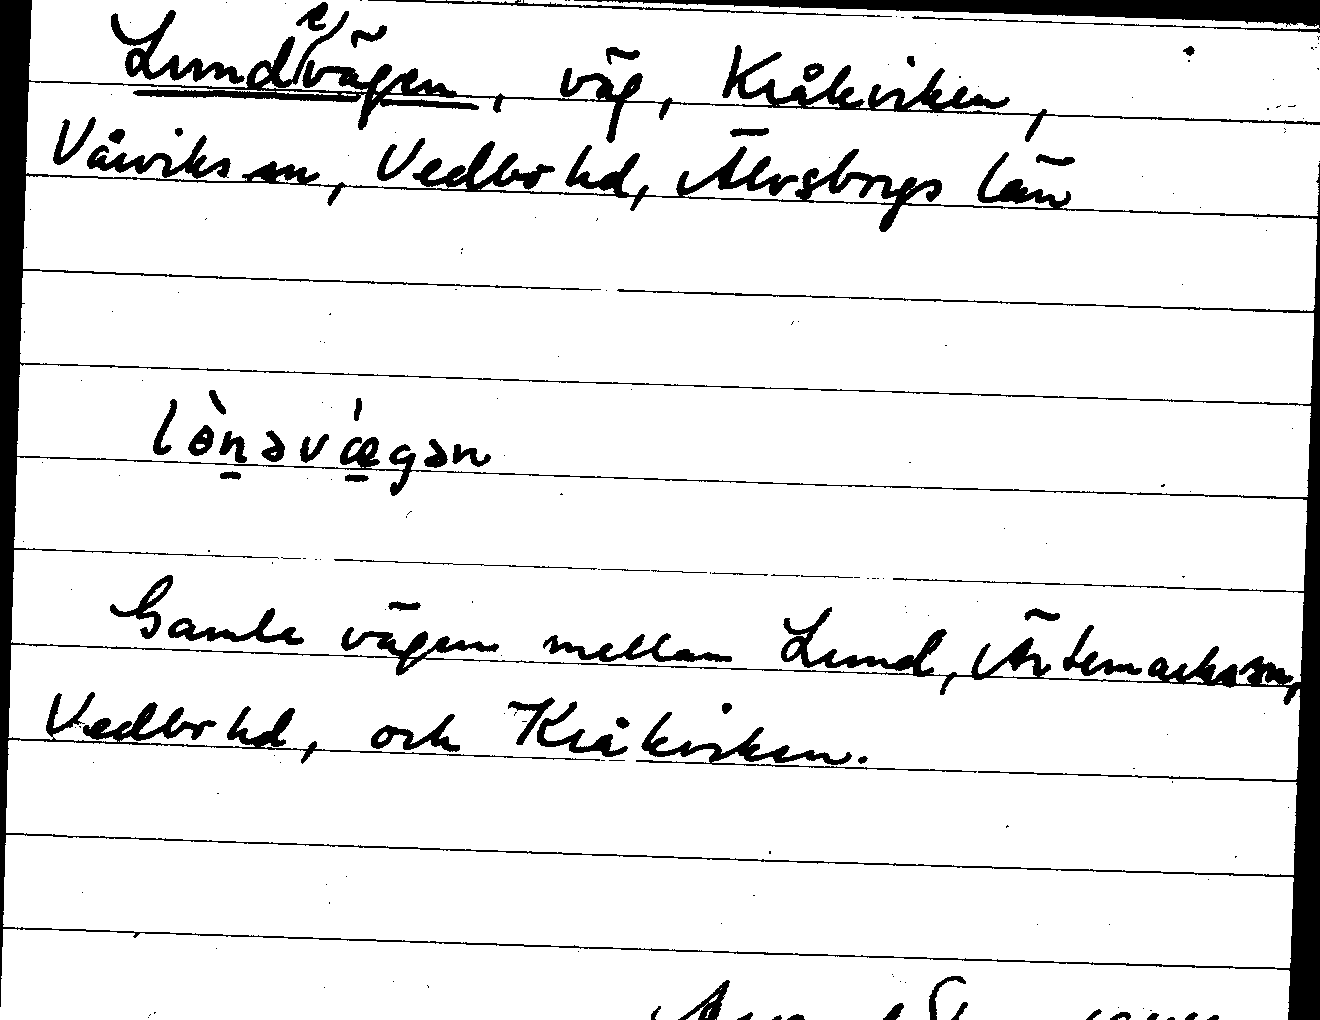 Lundevägen, väg, Kråkviken,
Vårviks sn, Vedbo hd, Älvsborgs län
lònəvǽgən
Gamle vägen mellan Lund, Ärtemarks sn,
Vedbo hd, och Kråkviken.